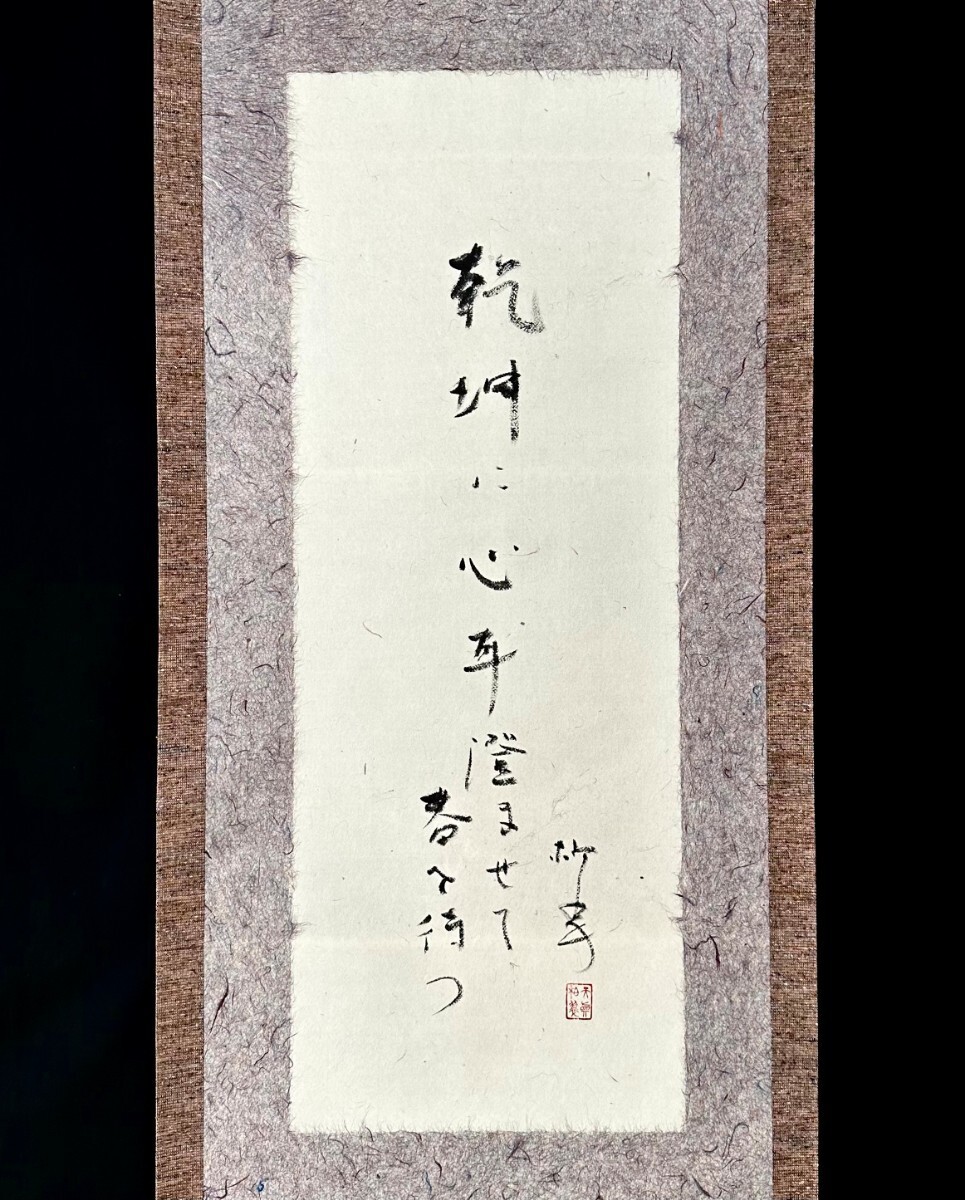 乾坤に心耳澄ませて
春を待つ